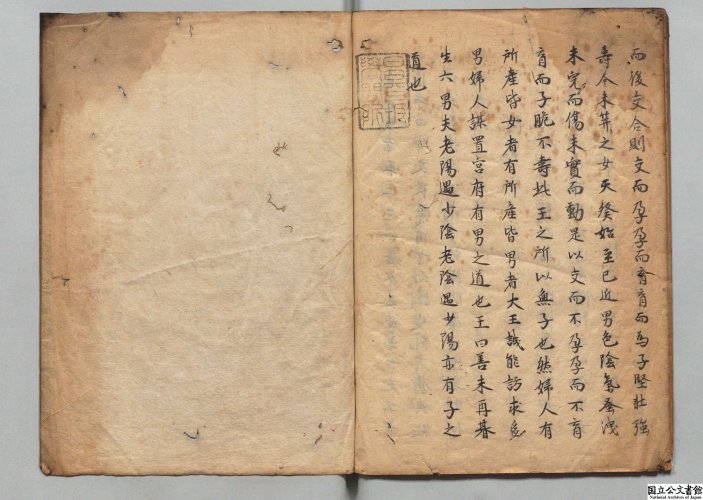 而後交合則交而孕孕而育育而為子堅壮強
壽今未笄之女天癸始至已近男色陰氣蚤洩
未完而傷未實而動是以交而不孕孕而不育
育而子脆不壽此王之所以無子也然婦人有
所產皆女者有所產皆男者大王誠能訪求多
男婦人謀置宮府有男之道也王曰善未再朞
生六男夫老陽遇少陰老陰遇少陽亦有子之
道也
国立公文書館
National Archives of Japan